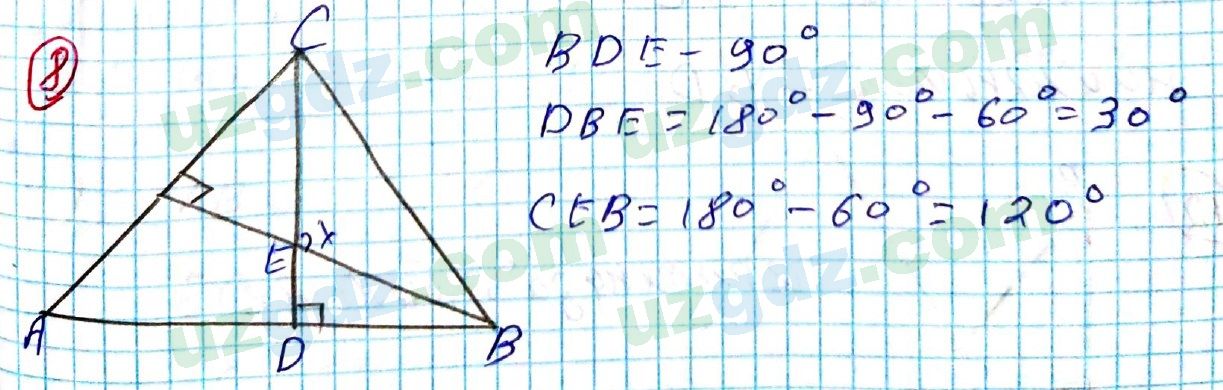 8
C
BDE - 90°
DBE = 180° - 90° - 60° = 30°
CEB = 180° - 60° = 120°
E x
A D B
uzgdz.com
uzgdz.com
uzgdz.com
uzgdz.com
uzgdz.com
uzgdz.com